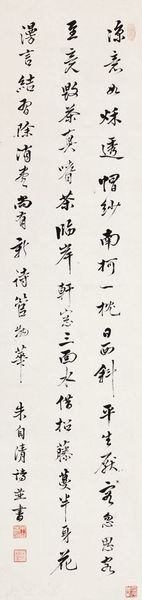 凉意如穌透帽紗南柯一枕日西斜平生厭客思客
至竟茶真茶臨岸軒窓三面水借招藤蔓半身花
漫言結習除消盡尚有新詩管物華 朱自清詩並書